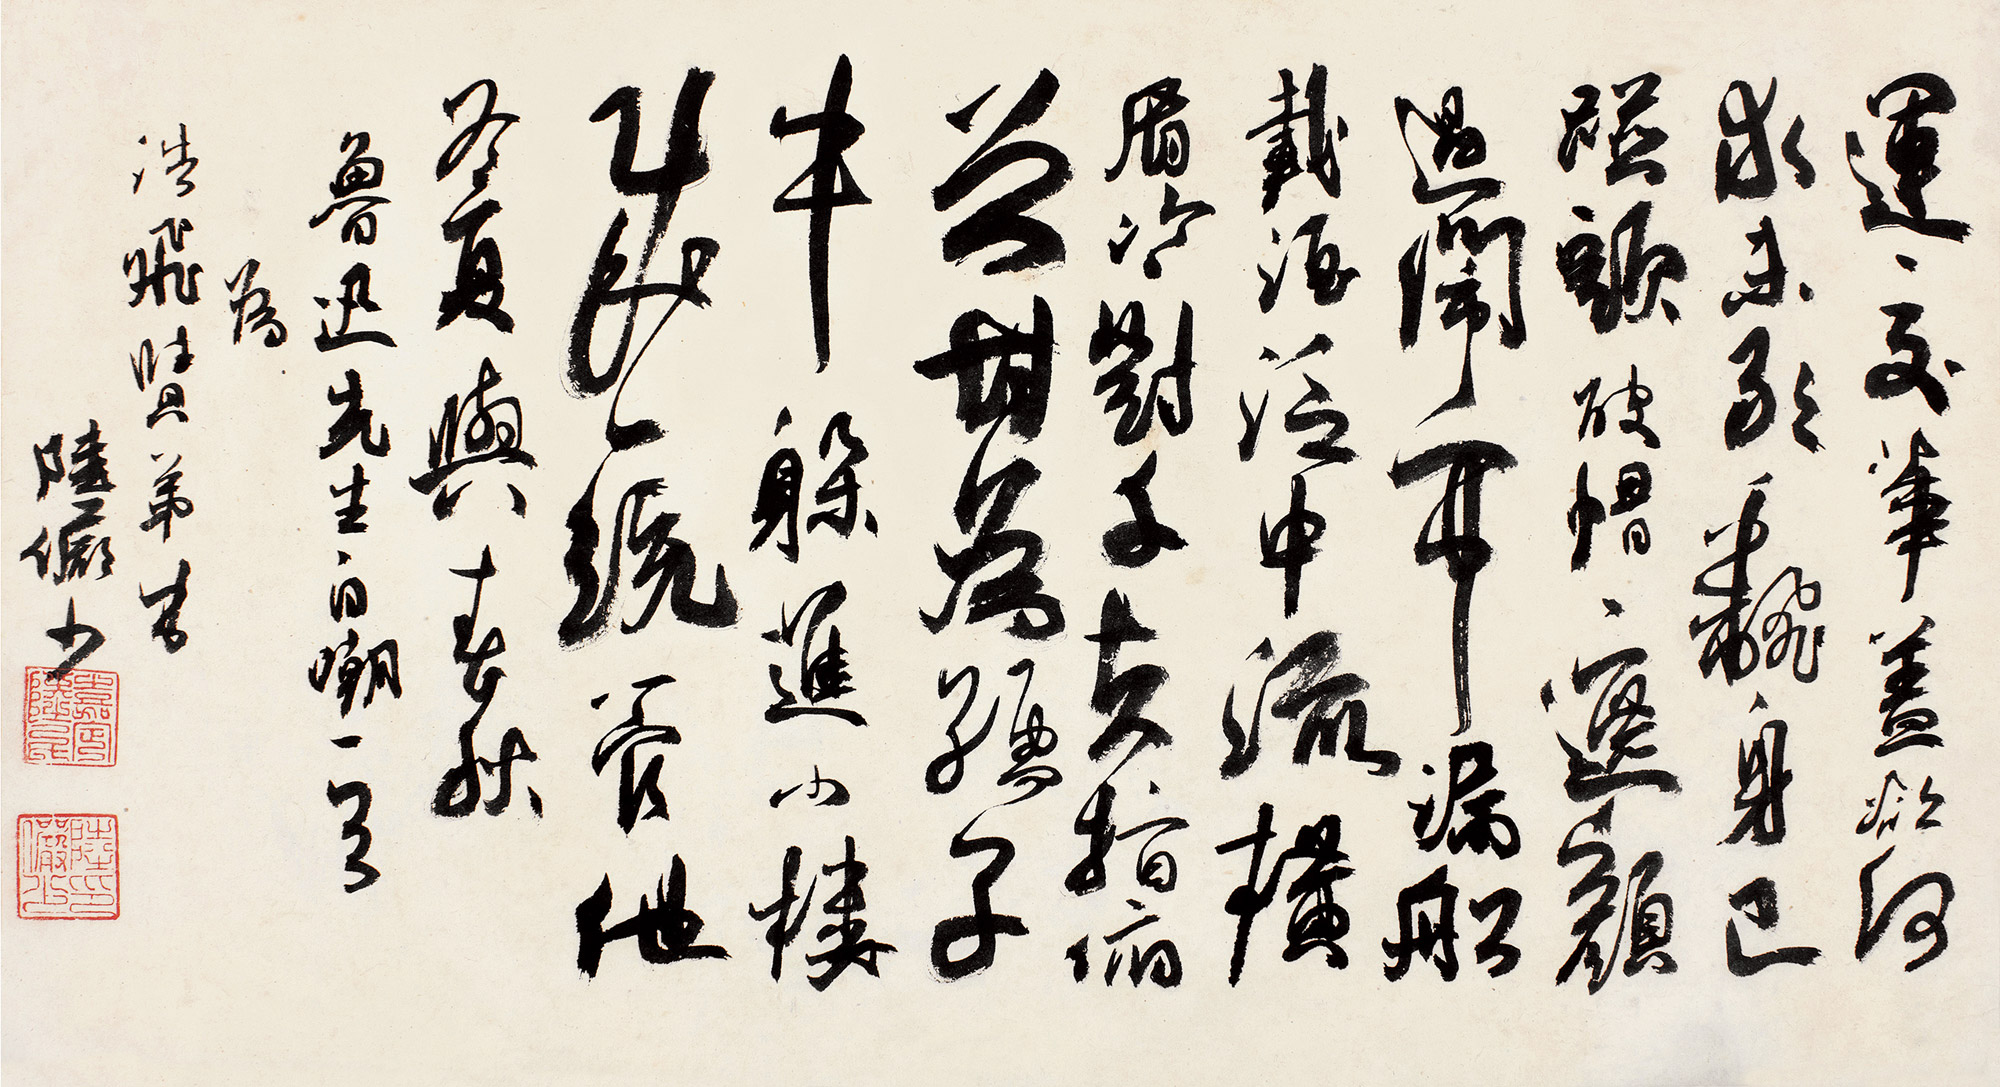 運交華蓋欲何
求未敢翻身已
碰頭破帽遮顏
過鬧市漏船
載酒泛中流橫
眉冷對千夫指俯
首甘為孺子
牛躲進小樓
成一統管他
冬夏與春秋
魯迅先生自嘲一首
為
浩飛賢弟書
陸儼少
嘉定陸氏
陸儼少印